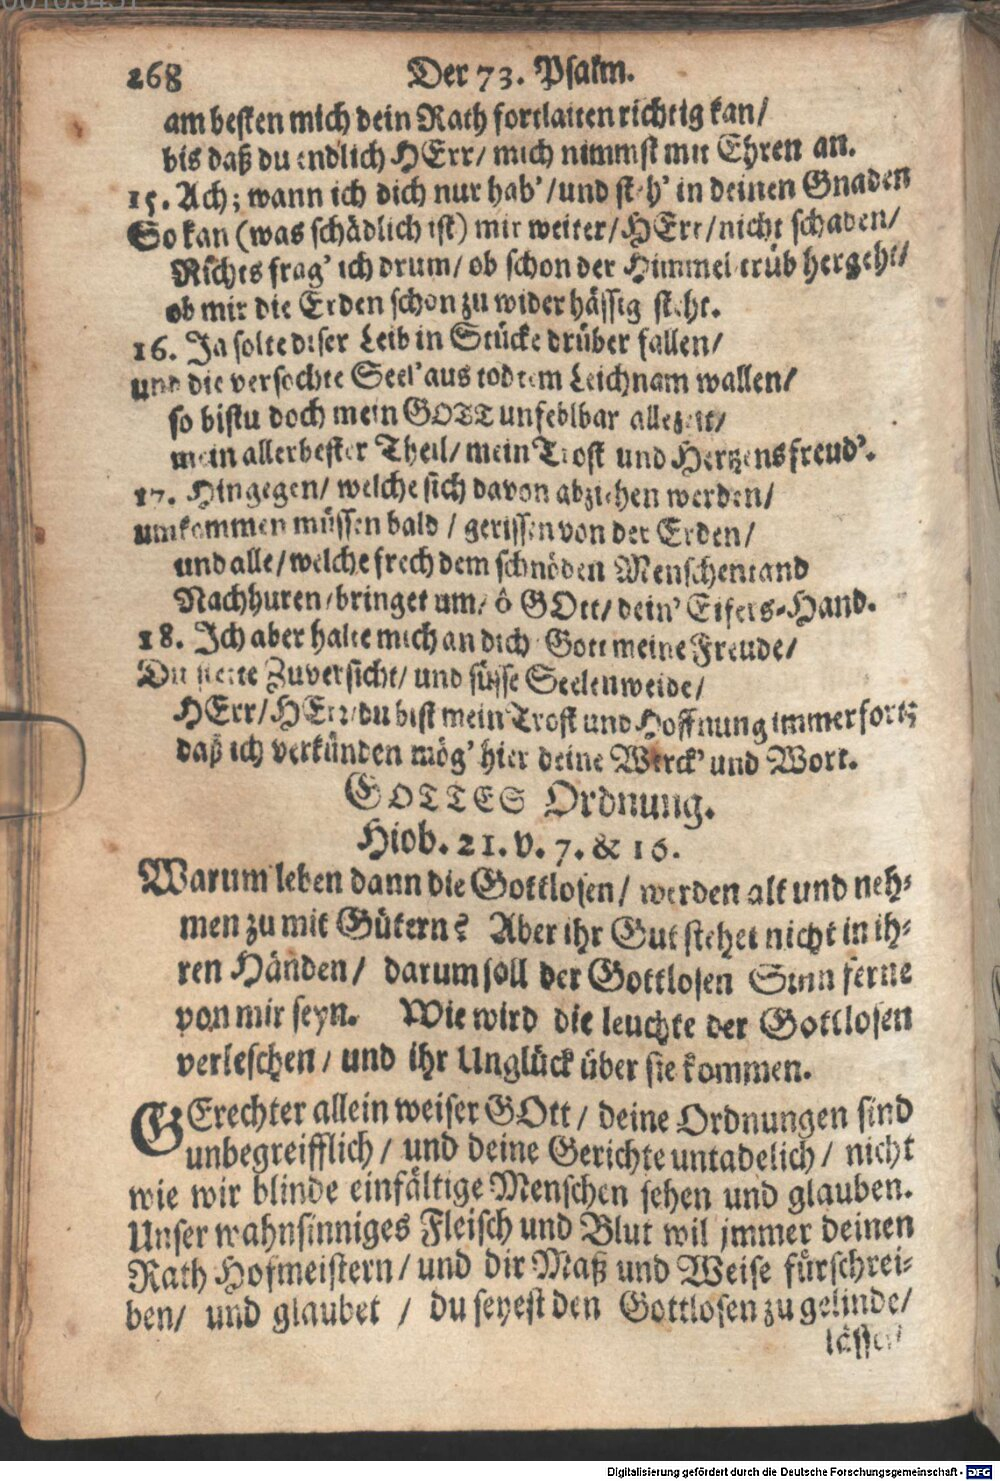 268 Der 73. Psalm.
am besten mich dein Rath fortlaiten richtig kan/
bis daß du endlich HErr/ mich nimmst mit Ehren an.
15. Ach; wann ich dich nur hab'/und steh' in deinen Gnaden
So kan (was schädlich ist) mir weiter/HErr/nicht schaden/
Nichts frag' ich drum/ ob schon der Himmel trüb hergeht/
ob mir die Erden schon zu wider hässig steht.
16. Ja solte diser Leib in Stücke drüber fallen/
und die versochte Seel' aus todtem Leichnam wallen/
so bistu doch mein GOTT unfehlbar allezeit/
mein allerbester Theil/ mein Trost und Hertzensfreud'.
17. Hingegen/ welche sich davon abziehen werden/
umkommen müssen bald / gerissen von der Erden/
und alle/welche frech dem schnöden Menschentand
Nachhuren/bringet um/ ô GOtt/dein' Eifers-Hand.
18. Ich aber halte mich an dich Gott meine Freude/
Du Zuversicht/ und süsse Seelenweide/
HErr/HErr/du bist mein Trost und Hoffnung immerfort;
daß ich verkünden mög' hier deine Werck' und Wort.
GOTTES Ordnung.
Hiob. 21. v. 7. & 16.
Warum leben dann die Gottlosen/ werden alt und neh-
men zu mit Gütern? Aber ihr Gut stehet nicht in ih-
ren Händen/ darum soll der Gottlosen Sinn ferne
von mir seyn. Wie wird die leuchte der Gottlosen
verleschen/ und ihr Unglück über sie kommen.
GErechter allein weiser GOtt/ deine Ordnungen sind
unbegreifflich/ und deine Gerichte untadelich/ nicht
wie wir blinde einfältige Menschen sehen und glauben.
Unser wahnsinniges Fleisch und Blut wil jmmer deinen
Rath Hofmeistern/ und dir Maß und Weise fürschrei-
ben/ und glaubet / du seyest den Gottlosen zu gelinde/
lässest
Digitalisierung gefördert durch die Deutsche Forschungsgemeinschaft - DFG